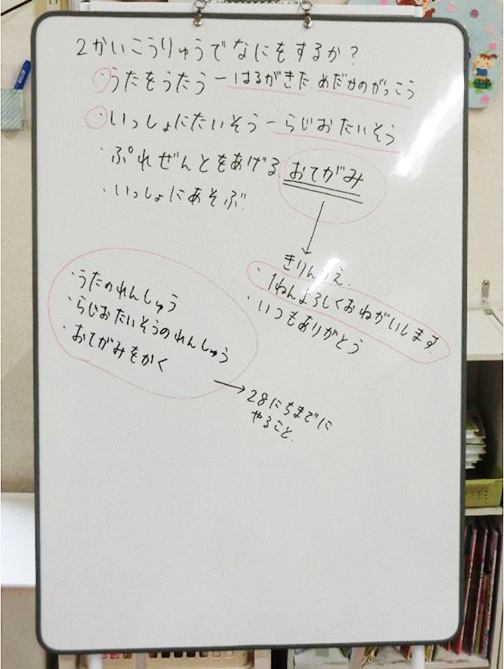 2かいこうりゅうでなにをするか?
・うたをうたう－はるがきた めだかのがっこう
・いっしょにたいそう－らじおたいそう
・ぷれぜんとをあげる おてがみ
・いっしょにあそぶ
きりんのえ
・1ねんよろしくおねがいします
・いつもありがとう
・うたのれんしゅう
・らじおたいそうのれんしゅう
・おてがみをかく
→28にちまでに
やること